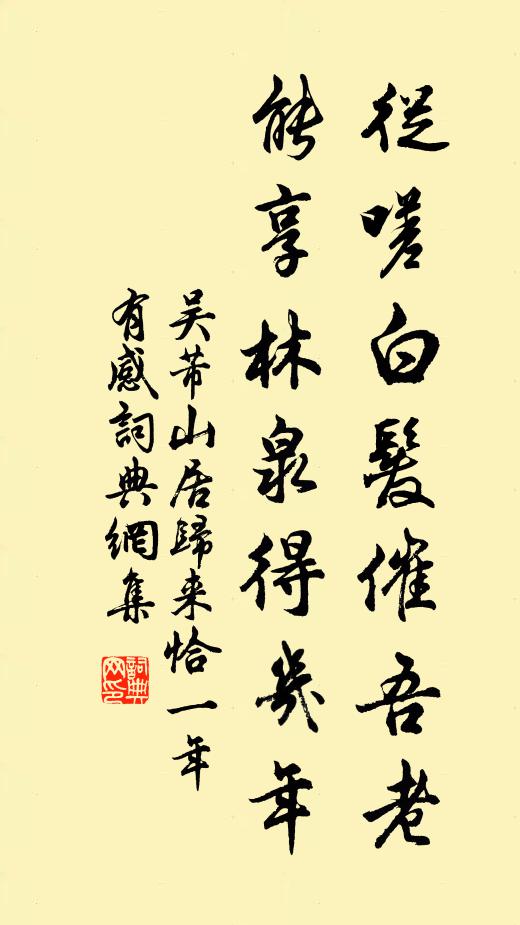 從嗟白髮催吾老
能享林泉得幾年
吴芾山居歸来恰一年
有感詞典網集
詞典
网印